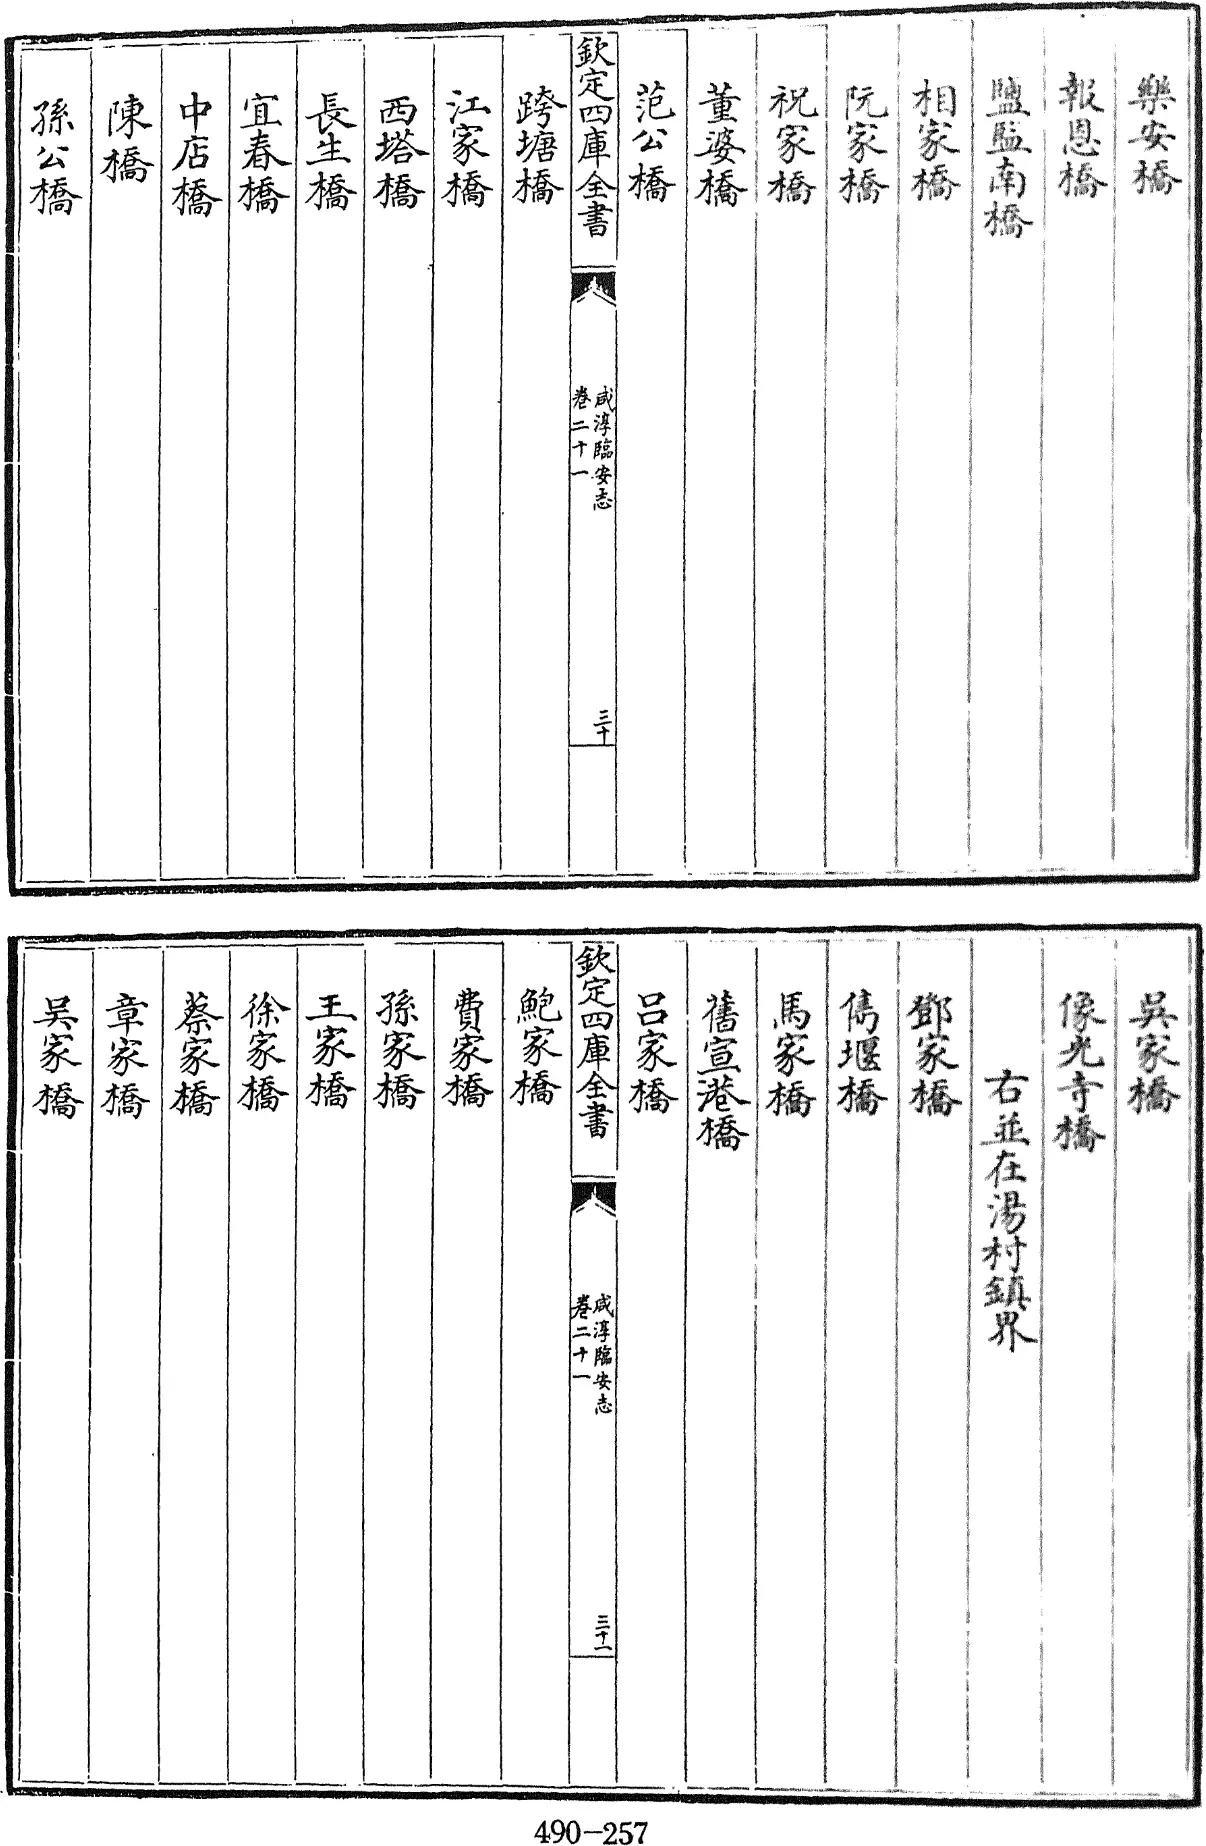 樂安橋
報恩橋
鹽監南橋
相家橋
阮家橋
祝家橋
董婆橋
范公橋
欽定四庫全書
咸淳臨安志
卷二十一
三十
跨塘橋
江家橋
西塔橋
長生橋
宜春橋
中店橋
陳橋
孫公橋
吳家橋
像光寺橋
右並在湯村鎮界
鄧家橋
雋堰橋
馬家橋
舊宣港橋
呂家橋
欽定四庫全書
咸淳臨安志
卷二十一
三十一
鮑家橋
費家橋
孫家橋
王家橋
徐家橋
蔡家橋
章家橋
吳家橋
490-257